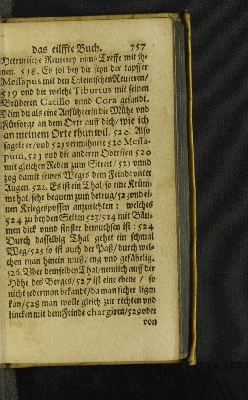 das eilffte Buch. 757
Hetrurische Reuterey vnnd Treffe mit ih-
nen. 518. Es sol bey dir seyn der tapffer
Messapus mit den Lateinischen Reutern/
519 vnd die welche Tiburtus mit seinen
Brüdern Catillo vnnd Cora gesandt.
Nim du als eine Anführerin die Mühe vnd
Fürsorge an dem Orte auff dich, wie ich
an meinem Orte thun wil. 520. Also
sagete er/vnd 521 vermahnete 520 Messa-
pum, 523 vnd die andern Obersten 520
mit gleichen Reden zum Streit/ 521 vnnd
zog damit seines Weges dem Feinde vnter
Augen. 522. Es ist ein Thal/so eine Krüm-
me hat/sehr bequem zum betrug/523 vnd ei-
nen Kriegespossen anzurichten: welches
524 zu beyden Seiten 523/524 mit Bäu-
men dick vnnd finster bewachsen ist: 524
Durch dasselbig Thal gehet ein schmal
Weg/525 so ist auch der Paß/durch wel-
chen man hinein muß/ eng vnd gefährlig.
526. Vber demselben Thal/nemlich auff der
Höhe des Berges/527 ist eine ebene / so
nicht jederman bekandt/da man sicher ligen
kan/528 man wolle gleich zur rechten vnd
lincken mit dem Feinde chargiren/529 oder
von